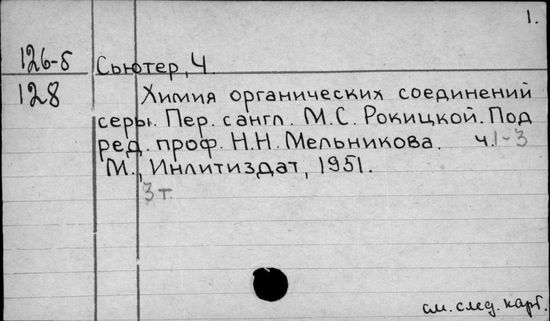 1.
126-5 Сьютер, Ч.
128 Химия органических соединений
серы. Пер. с англ. М.С. Рокицкой. Под
ред. проф. Н.Н. Мельникова. ч.1-3
М., Инлитиздат, 1951.
3 т.
см. след. карт.